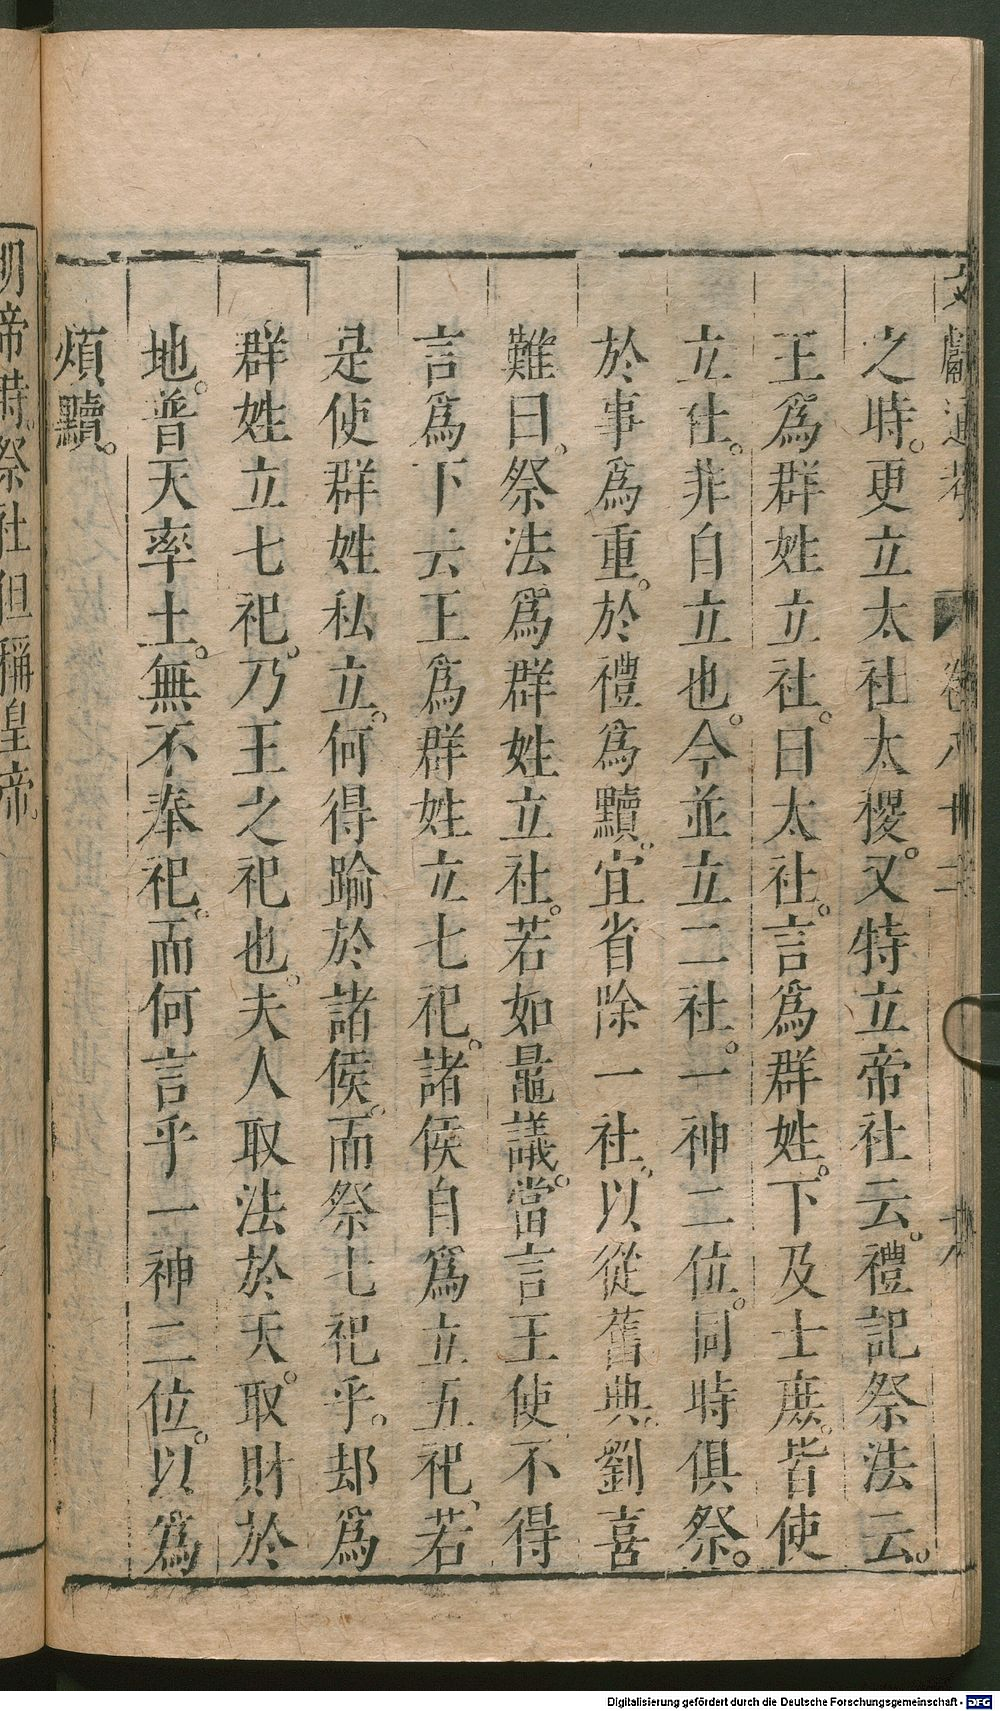 文獻通考 卷八十二
之時。更立太社太稷。又特立帝社云。禮記祭法云。
王爲群姓立社。曰太社。言爲群姓。下及士庶。皆使
立社。非自立也。今並立二社。一神二位。同時俱祭。
於事爲重。於禮爲黷。宜省除一社。以從舊典。劉喜
難曰。祭法爲群姓立社。若如鼂議。當言王使不得
言爲下云王爲群姓立七祀。諸侯自爲立五祀。若
是使群姓私立。何得踰於諸侯。而祭七祀乎。却爲
群姓立七祀。乃王之祀也。夫人取法於天。取財於
地。普天率土。無不奉祀。而何言乎一神二位。以爲
煩黷。
明帝時。祭社但稱皇帝。
Digitalisierung gefördert durch die Deutsche Forschungsgemeinschaft - DFG